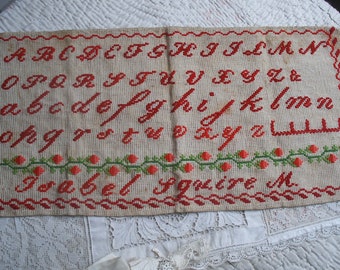 A B C D E F G H I J L M N
O P Q R S T U V X Y Z &
a b c d e f g h i j k l m n
o p q r s t u v x y z
Isabel Squire M.